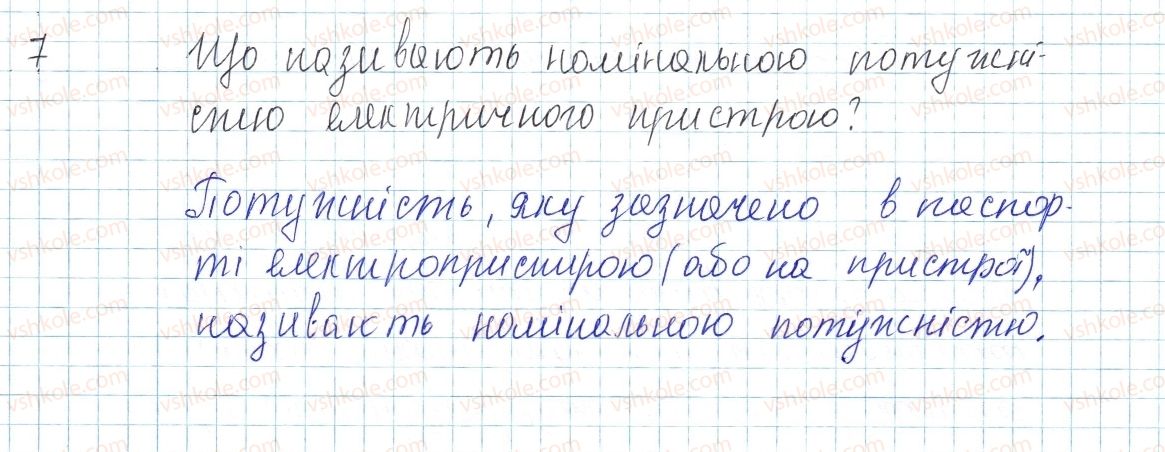 7 Що називають номінальною потужні-
стю електричного пристрою?
Потужність, яку зазначено в паспор-
ті електропристрою (або на пристрої),
називають номінальною потужністю.